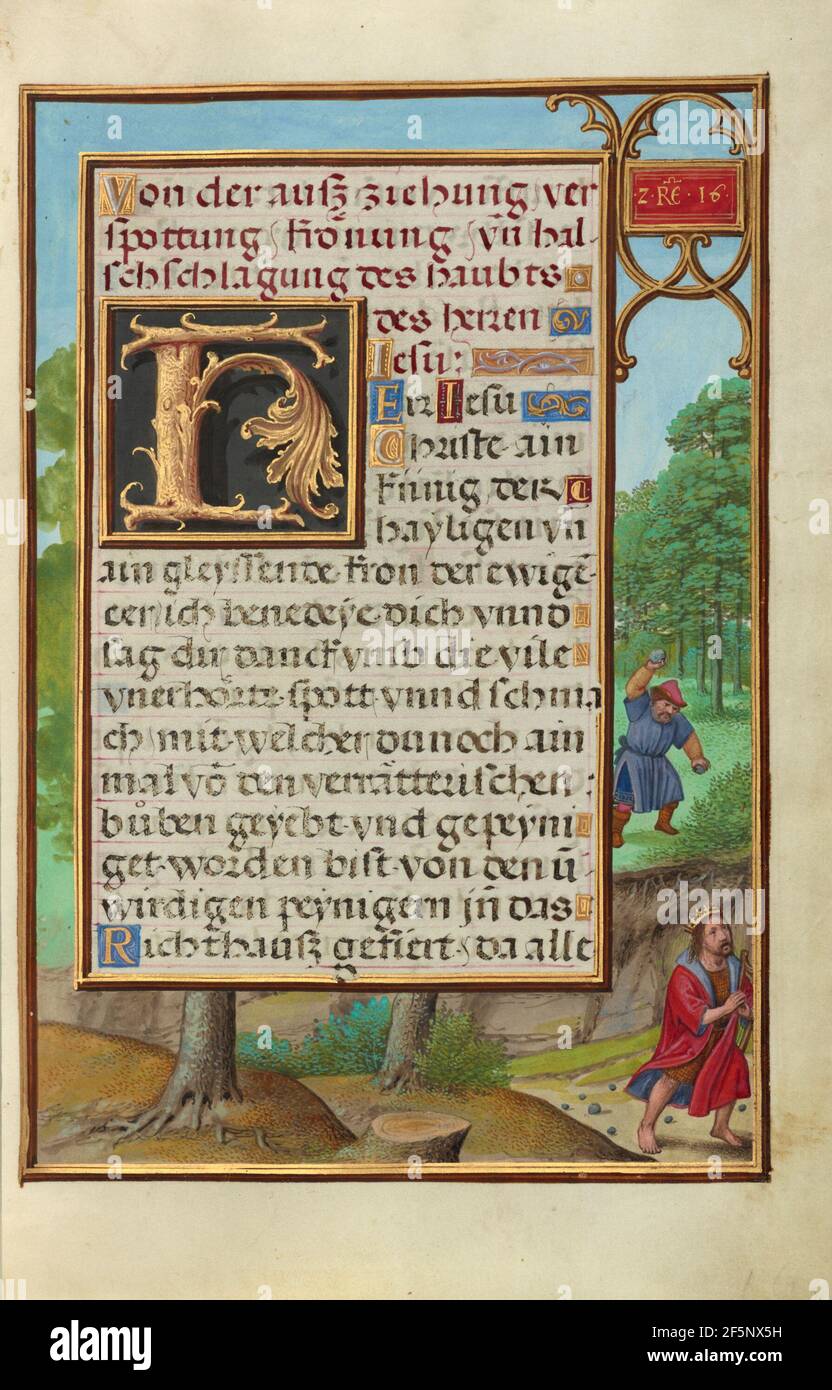 Von der ausz ziehung ver
spottung krönung vn̄ hal-
schschlagung des haubts
des herren
Iesu:
HErr Iesu
Christe ain
künig der
hayligen vn̄
ain gleyssende kron der ewigē
eer ich benedeye dich vnnd
sag dir danck vmb die vile
vnerhörte spott vnnd schma
ch mit welcher du noch ain
mal vō den verrätterischen
bůben geyebt vnd gepeyni
get worden bist von den ū
wirdigen peynigern jn̄ das
Richthausz gefiert da alle
·2·RE·16·
alamy
Image ID: 2F5NX5H
www.alamy.com